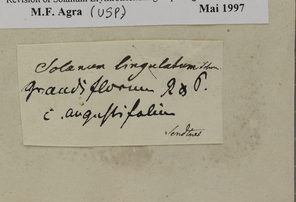 M.F. Agra (USP) Mai 1997
Solanum lingulatum
grandiflorum R & P.
c angustifolium
Sendtner